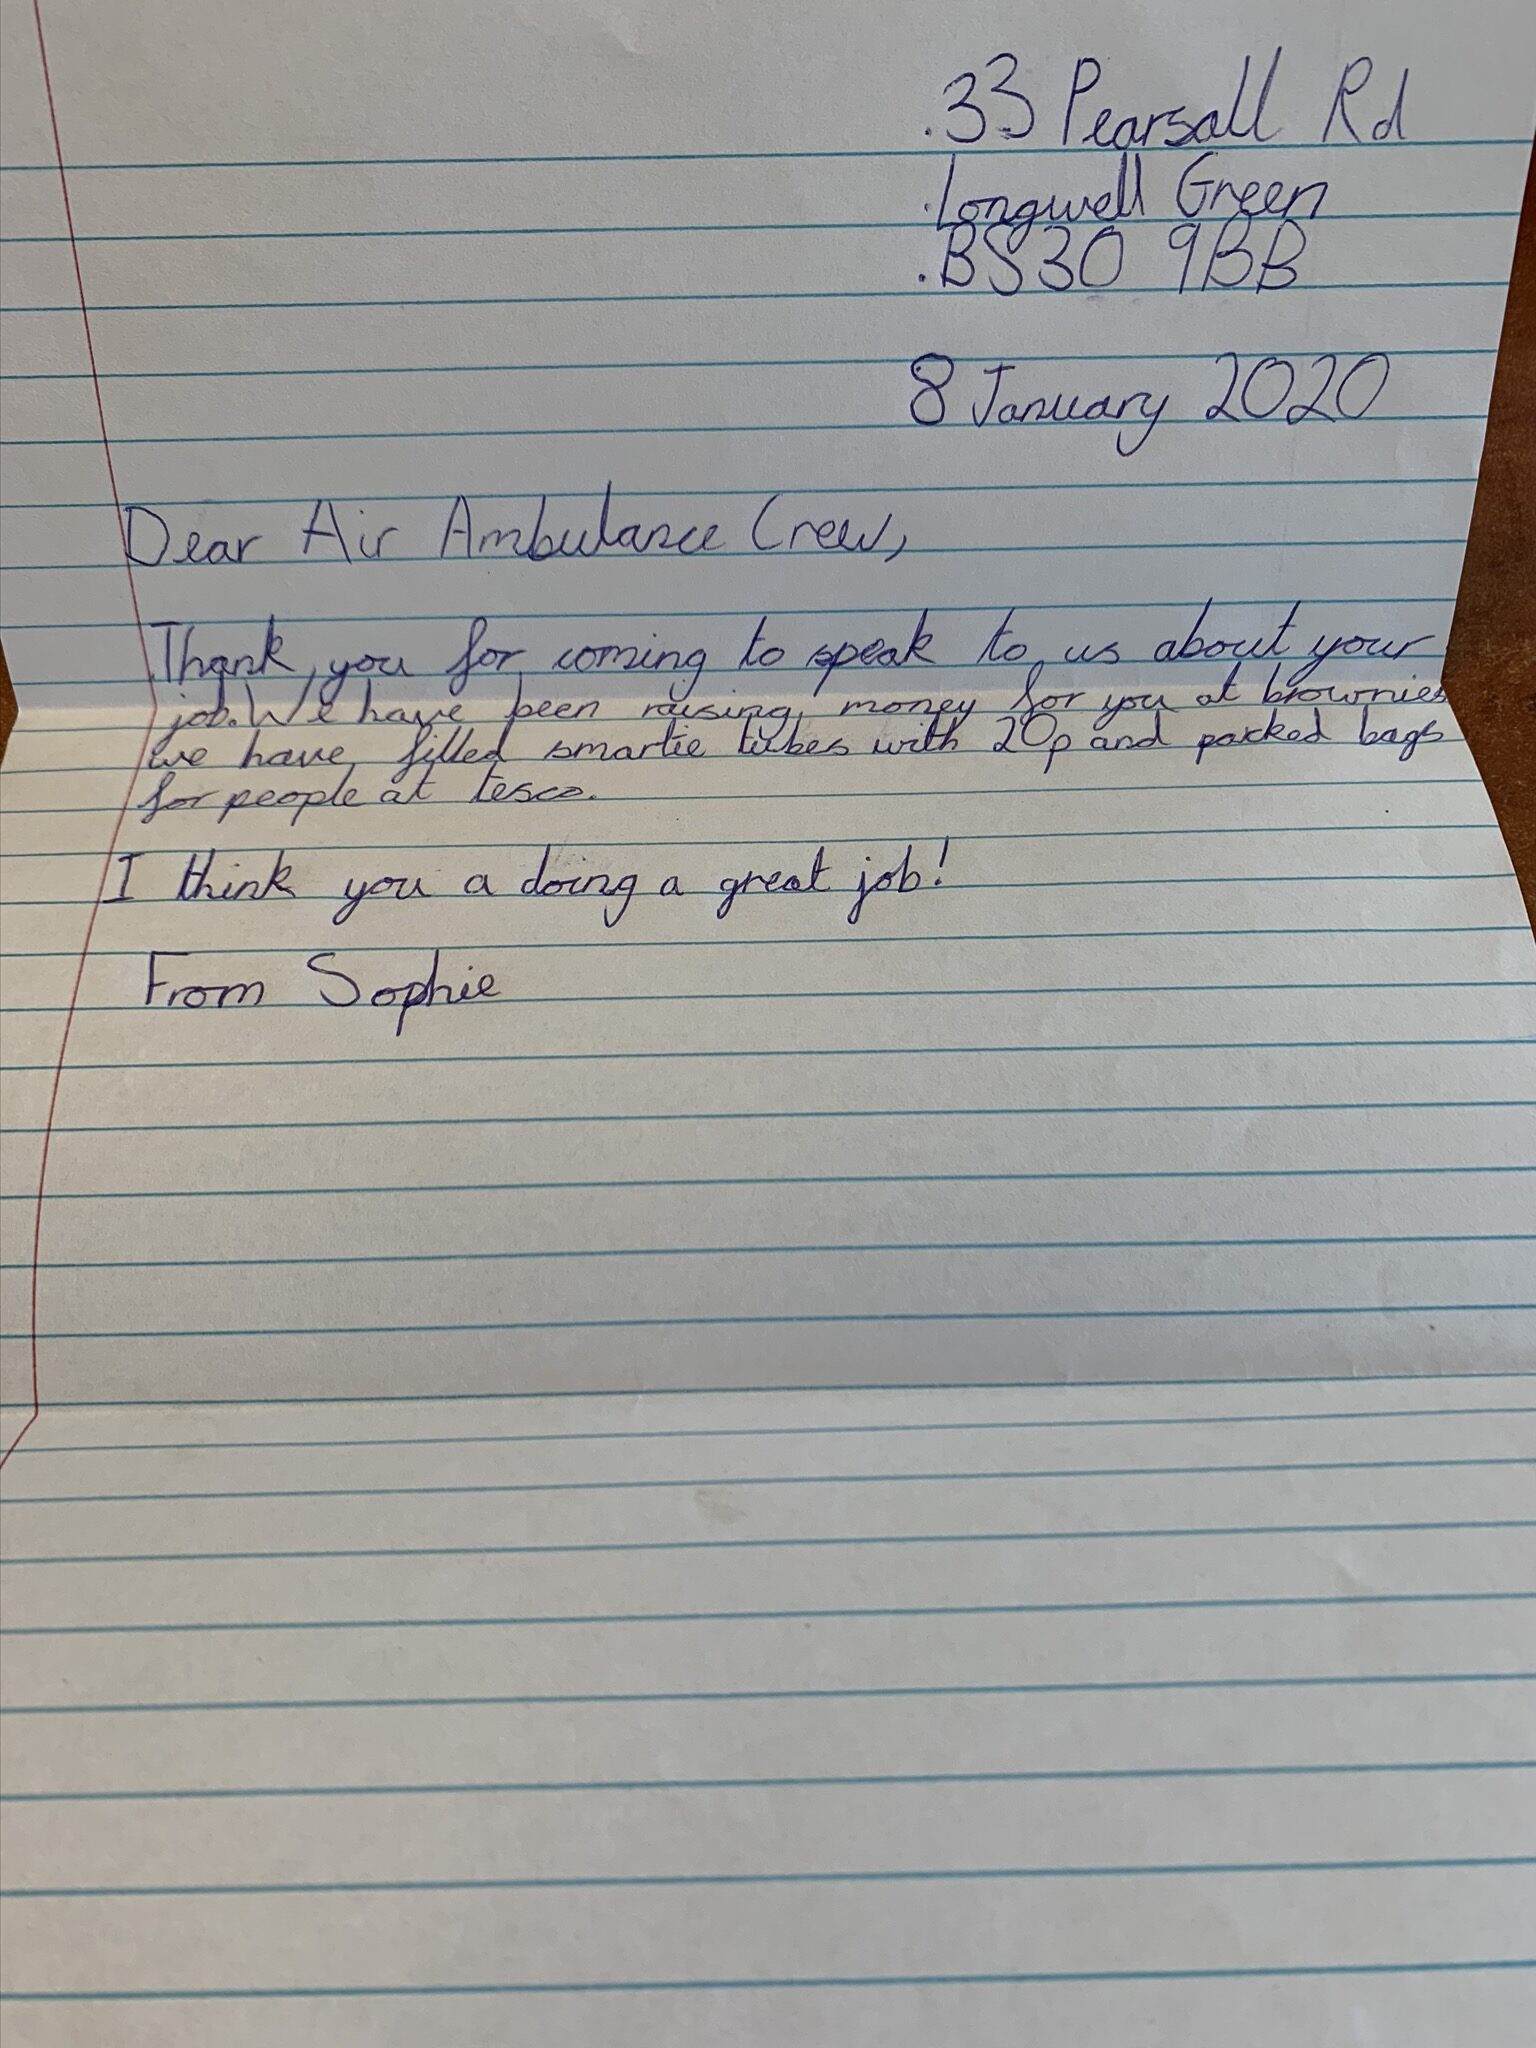 .33 Pearsall Rd
.Longwell Green
.BS30 9BB
8 January 2020
Dear Air Ambulance Crew,
Thank you for coming to speak to us about your
job. We have been raising money for you at brownies
we have filled smartie tubes with 20p and packed bags
for people at tesco.
I think you a doing a great job!
From Sophie